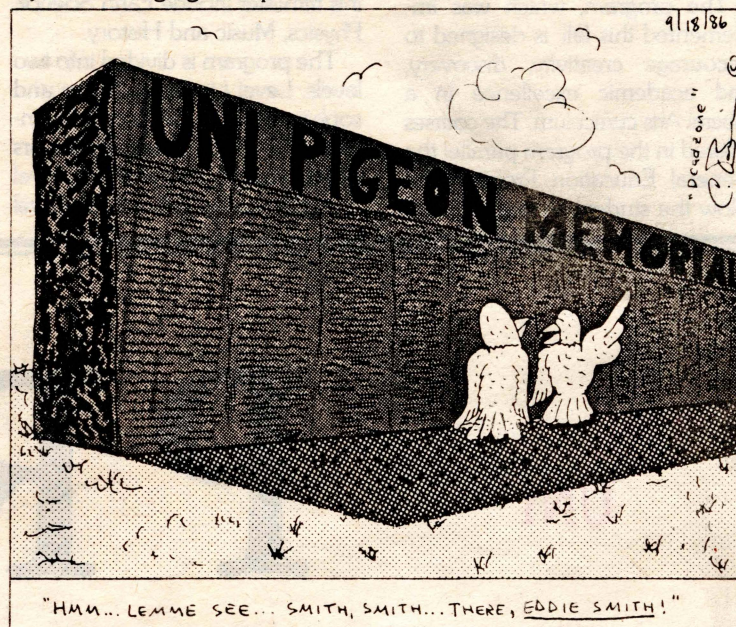 9/18/86
"Deadzone"
UNI PIGEON MEMORIAL
"HMM... LEMME SEE... SMITH, SMITH... THERE, EDDIE SMITH!"